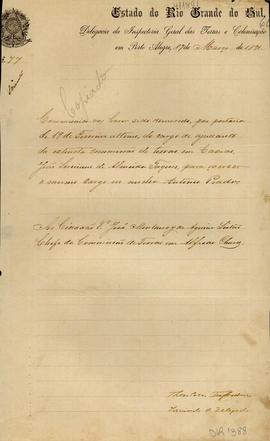 Estado do Rio Grande do Sul,
Delegacia da Inspectoria Geral das Terras e Colonisação
em Porto Alegre, 17 de Março de 1891
277
Copiado
Communico vos haver sido removido, por portaria
de 17 de Fevereiro ultimo, do cargo de ajudante
da extincta commissão de terras em Caxias,
José Luciano de Almeida para exercer
o mesmo cargo no nucleo Antonio Prado.
Ao Cidadão Dr. José Montaury de Aguiar Leitão
Chefe da Commissão de Terras em Alfredo Chaves
Servindo de Delegado